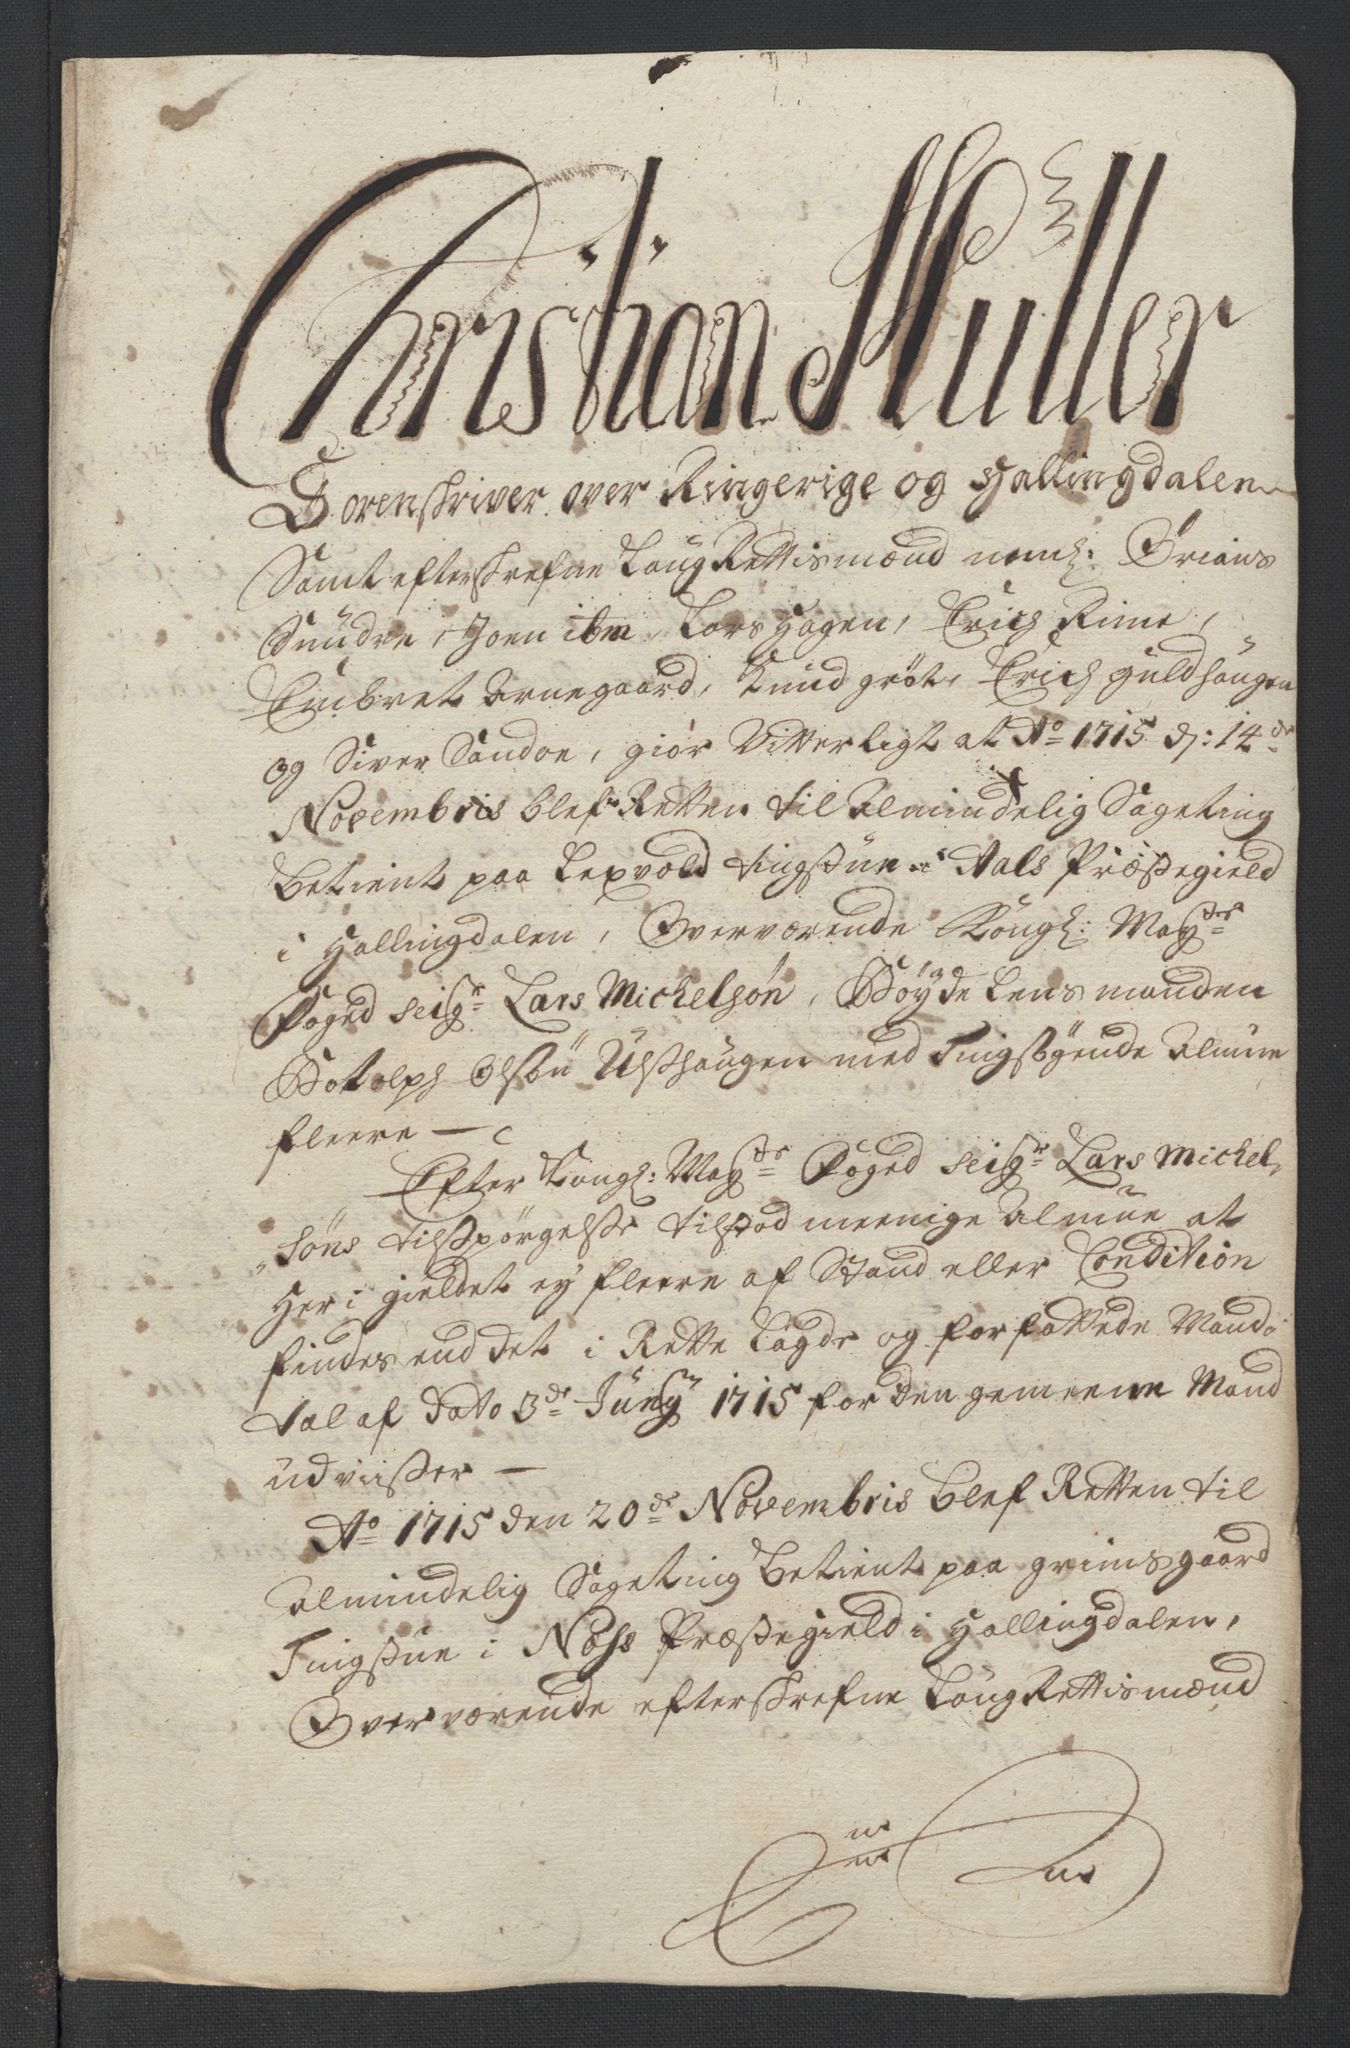 Christian Müller
Sorenskriver over Ringerige og Hallingdalen
Samt efterskrefne Laug Rettismænd neml: Ørians
Sundre, Joen ibm, Lars Hagen, Erich Rime,
Embret Arnegaard, Knud grøt, Erich guldhaugen
og Siver Sandoe, giør Vitterligt at Ao 1715 d: 14de
Novembris blef Retten til Almindelig Sageting
betient paa Lexvold tingstue i Aals Præstegield
i Hallingdalen, Overværende Kongl: Mayts
Foged seigr Lars Michelsøn, Bøyde Lensmanden
Botolph Olsøn Ulshaugen med Tingsøgende Almue
fleere —
Efter Kongl: Mayts Foged seigr Lars Michel-
søns tilspørgelse tilstod meenige Almue at
Her i gieldet ey fleere af Stand eller Condition
findes end det i Rette lagde og forfattede Mand-
tal af Dato 3de Junij 1715 for den gemeene Mand
udviisser —
Ao 1715 den 20de Novembris blef Retten til
Almindelig Sageting betient paa grimsgaard
Tingstue i Næss Præstegield i Hallingdalen,
Overværende efterskrefne Laug Rettismænd